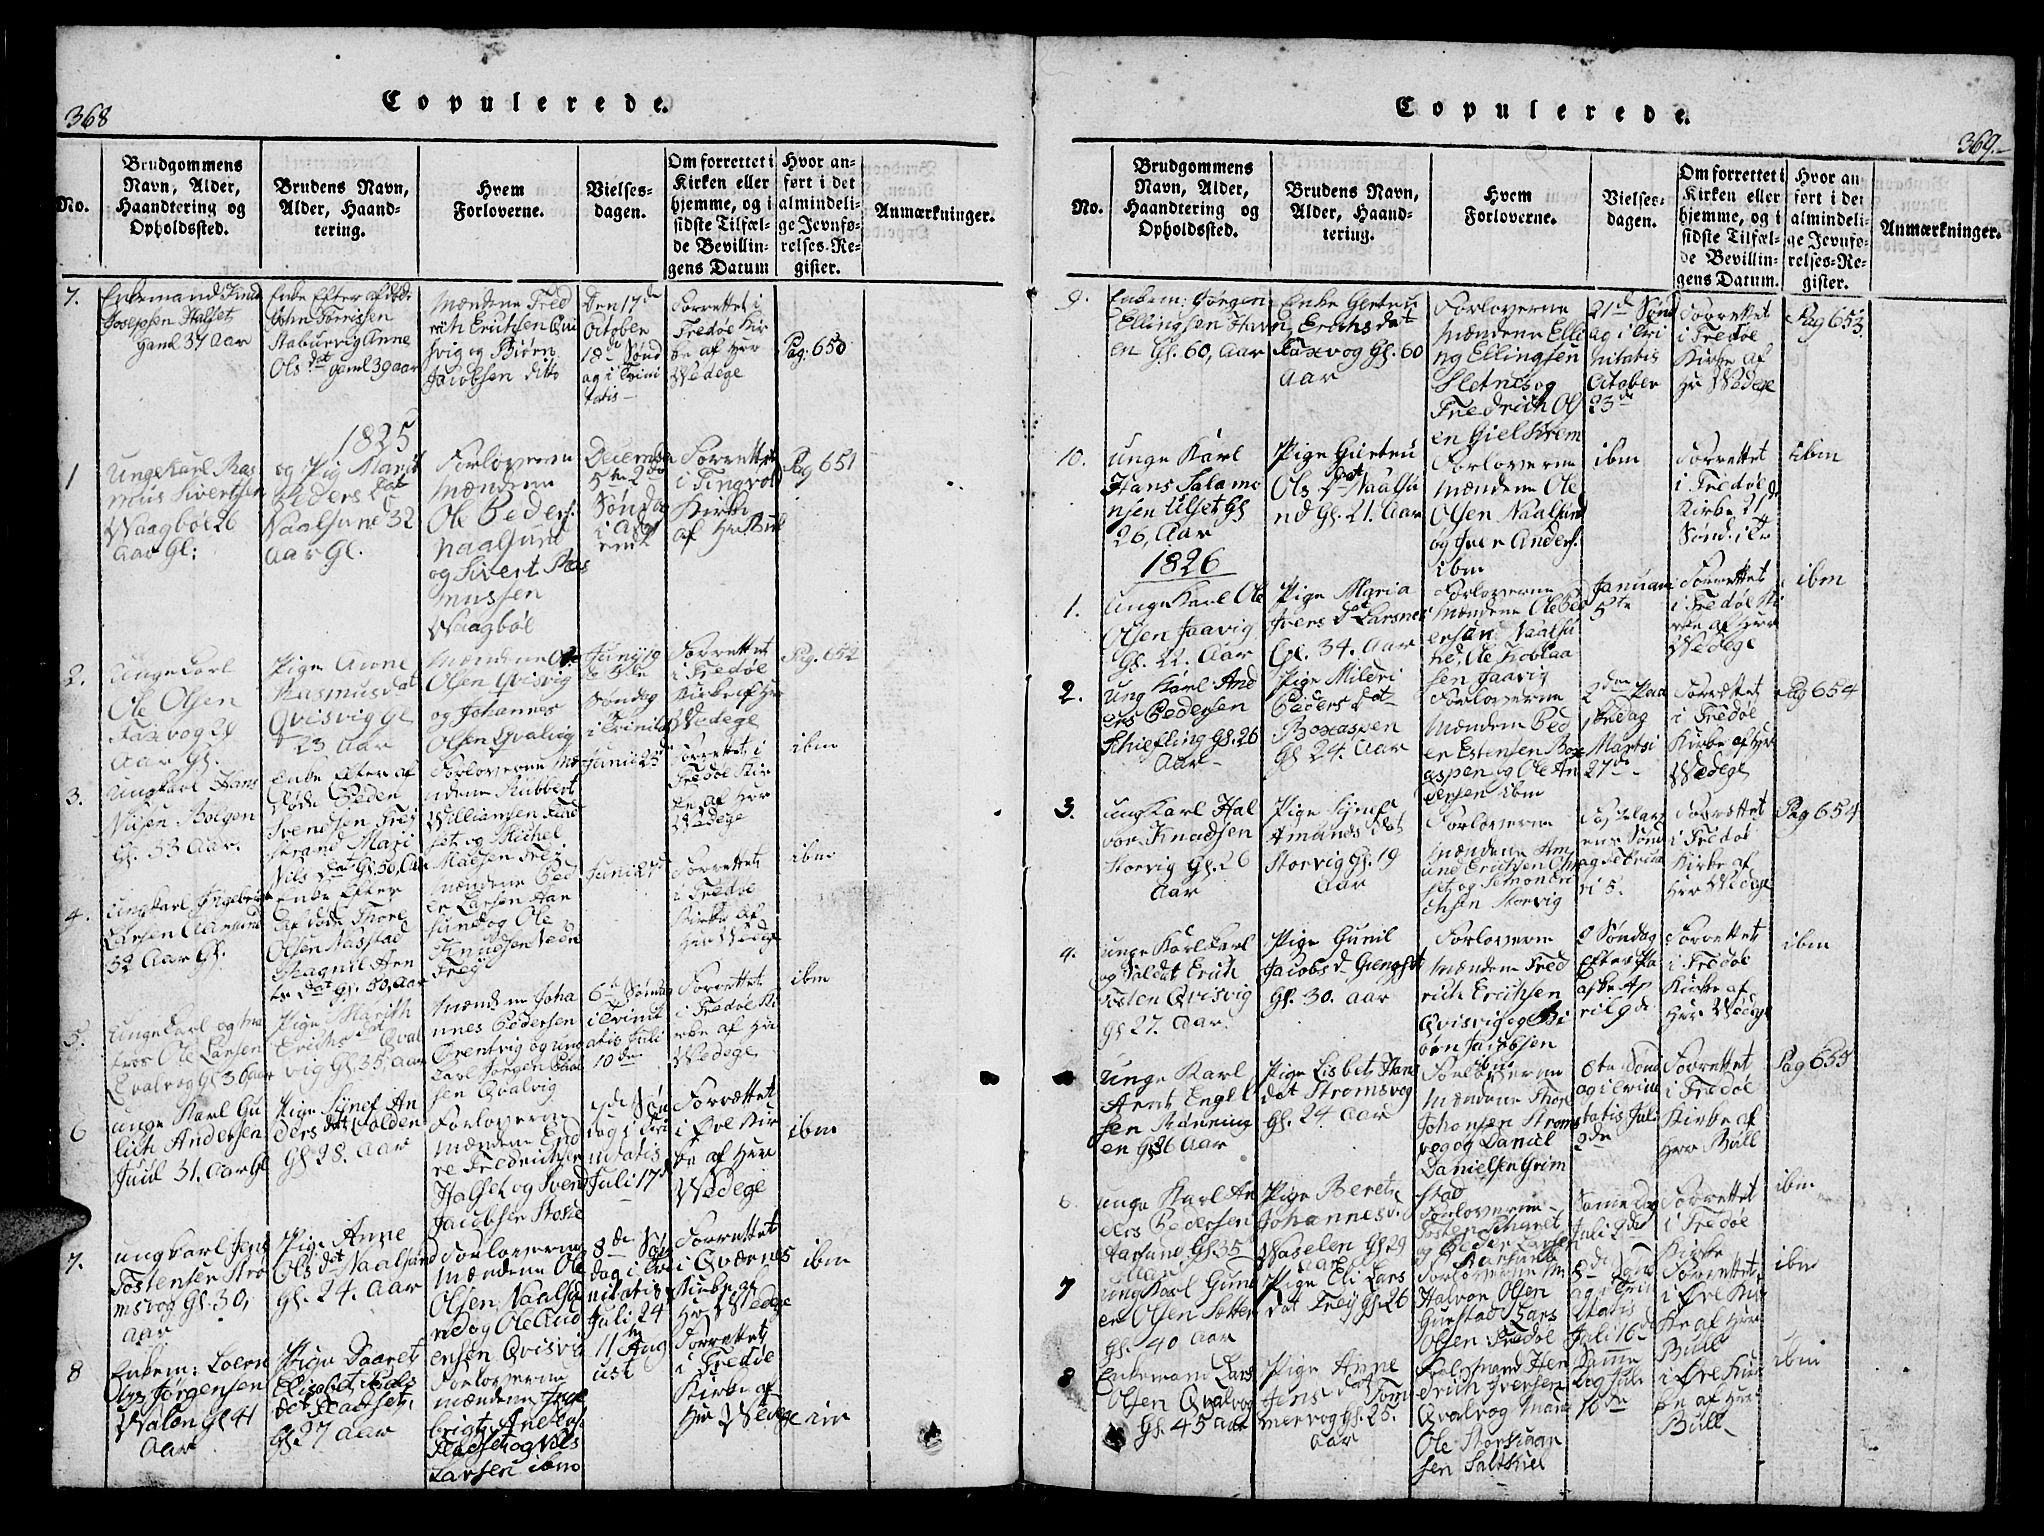 368
Copulerede.
No.
Brudgommens
Navn, Alder,
Haandtering og
Opholdssted.
Brudens Navn,
Alder, Haand-
tering.
Hvem
Forloverne.
Vielses-
dagen.
Om forrettet i
Kirken eller
hjemme, og i
sidste Tilfæl-
de Bevillin-
gens Datum
Hvor an-
ført i det
almindeli-
ge Jevnfø-
relses-Re-
gister.
Anmærkninger.
7.
Enkemand Knud
Josephsen Halset
gaml 37 Aar
Enke Efter afdøde
John Torrissen
Staburvig Anne
Ols dat gaml 39 aar
Mændene Fred
rich Erichsen Qui
svig og Biørn
Jacobsen ditto
Den 17de
October
18de Sønd
ag i Trini
tatis
Forrettet i
Fredøe Kir
ke af Herr
Wedege
Pag: 650
1825
1
Unge Karl Ras
mus Sivertsen
Waagbøe 26
Aar Gl:
og Pig Marit
Peders Dat
Naalsund 32
Aar Gl.
Forloverne
Mændene
Ole Peders:
Naalsund
og Sivert Ras
mussen
Waagbøe
Decemb
5te 2de
Sønda
i Adv
endt
Forrettet
i Tingvold
Kirke
af Hr Bull
Pag 651
2.
Unge Carl
Ole Olsen
Faxvog 29
Aar Gl.
Pige Anne
Rasmusdat
Qvisvig Gl
23 Aar
Mændene Ole
Olsen Qvisvig
og Johannes
Olsen Qvalvig
Juny 19
Søndag
i Trinita
Forrettet
i Fredøe
Kirke af Hr
Wedege
Pag. 652
3.
Ungkarl Hans
Nilsen Bolgen
Gl. 53 Aar.
Enke Efter af
døde Peder
Svendsen Frey
strand Mari
Nils Dat Gl. 50, Aar
Forloverne Mæ
ndene Kubbert
Williamsen Fur
set og Michel
Madsen Frei
Junii 25
Forrettet i
Fredøe Kir
ke af Herr
Wedege
ibm
4.
Ungkarl Ingebrigt
Larsen Aarsund
52 Aar Gl.
Enke Efter
Afdøde Thore
Olsen Aasstad
Magnil Arn
ts Dat gl. 50, Aar
Mændene Ped
er Larsen Aar
sund og Ole
Knudsen Neder
Frey
Junii 27
Forrettet
i Fredøe
Kirke af
Herr Wedege
ibm
5.
Unge Carl og Ma
tros Ole Larsen
Qvalvog Gl 36 aar
Pige Marith
Erichs dat Qval
vig Gl. 35, Aar
Mændene Joha
nnes Pedersen
Orentvig og ung
Carl Jørgen Paul
sen Qvalvig
6te Søndag
i Trinit
atis Juli
10de
Forrettet
i Fredøe Ki
rke af Hr
Wedege
ibm
6
Unge Karl Gu
lich Andersen
Juul 31. Aar Gl
Pige Synef An
ders Dat Folden
Gl 28. Aar
Forloverne
Mændene End
re Fredrichsen
Halset og Svend
Jacobsen
7de Søn
dag i Tri
nitatis
Juli 17de
Forrettet
i Øvre Kir
ke af Herr
Wedege
ibm
7.
Ungkarl Jens
Tostensen Strø
msvog Gl. 30,
Aar
Pige Anne
Ols dat Naalsund
Gl. 24. Aar
Forloverne
Mændene Ole
Olsen Naalsu
nd og Ole And
ersen Qvisvig
8de Søn
dag i Tri
nitatis
Juli 24
Forrettet
i Qværnes
Kirke af
Hr Wedege
ibm
8
Enkem: Loern
Jørgensen
Walen Gl 41
Aar
Pige Daaret
Elisabet Niels
dat Fladset
Gl. 37 Aar
Forloverne
Mændene Inge
brigt
Fladset og Nils
Larsen ibm
11te Aug
ust
Forrettet
i Fredøe
Kirke af
Hr Wedege
ibm
Copulerede.
369.
No.
Brudgommens
Navn, Alder,
Haandtering og
Opholdssted.
Brudens Navn,
Alder, Haand-
tering.
Hvem
Forloverne.
Vielses-
dagen.
Om forrettet i
Kirken eller
hjemme, og i
sidste Tilfæl-
de Bevillin-
gens Datum.
Hvor an
ført i det
almindeli-
ge Jevnfø-
relses-Re-
gister.
Anmærkninger.
9.
Enkem: Jørgen
Ellingsen Havn
en Gl. 60, Aar
Enke Giertru
Erichs dat
Faxvog Gl. 60
Aar
Forloverne
Mændene Elli
ng Ellingsen
Sletnes og
Fredrich Ols
en Gielskrem
21de Sønd
ag i Tri
nitatis
October
23de
Forrettet
i Fredøe
Kirke af
Hr Wedege
Pag 653
10.
Unge Karl
Hans Salamo
nsen Ulset Gl
26, Aar
Pige Giertru
Ols Dat Naalsu
nd Gl. 21. Aar
Forloverne
Mændene Ole
Olsen Naalsund
og Iver Anders:
ibm
ibm
Forrettet
i Fredøe
Kirke 21de
Sønd. i Tr
ibm
1826
1.
Unge Karl Ole
Olsen Jaavig
Gl. 22. Aar
Pige Maria
Ivers Dat Larsnes
Gl. 34. Aar
Forloverne
Mændene Ole Ped
ersen Naalsu
nd, Ole
sen Jaavig
Januari
5te
Forrettet
i Fredøe Ki
rke af Herr
Wedege
ibm
2.
Ung Karl And
ers Pedersen
Schiefling Gl. 26
Aar
Pige Mildri
Peders Dat
Boxaspen
Gl 24. Aar
Forloverne
Mændene Ped
er Estensen Box
aspen og Ole An
dersen ibm
2den Paa
skedag
Martsi
27de
Forrættet
i Fredøe
Kirke af Hr
Wedege
Pag 654
3.
Ung Karl Hal
vor Knudsen
Storvig Gl. 26
Aar
Pige Synef
Amunds Dat
Storvig Gl. 19
Aar
Forloverne
Mændene Am
und Erichsen
set og Simon Eri
chsen Storvig
Forrettet
i Fredøe
Kirke af
Herr Wedege
Pag 654
4.
Unge Karl
og Soldat Erich
Tosten Qvisvig
Gl 27. Aar.
Pige Gunil
Jacobs d
Gl. 30. Aar
Forloverne
Mændene Fred
rich Erichsen
Qvisvig og Bi
ørn Jacobsen
ibm
2 Søndag
Efter Pa
aske Ap
ril 9de
Forrettet
i Fredøe
Kirke af
Herr Wedege
ibm
Unge Karl
Arnt Engel
sen Rønning
en Gl 36 Aar
Pige Lisbet Hans
dat Strømsvog
Gl. 24 Aar
Forloverne
Mændene Thor
Johansen Strøms
vog og Daniel
Danielsen Grim
stad
6te Sønd
ag i Trini
tatis Juli
2de
Forrettet
i Fredøe
Kirke af
Herr Bull
Pag 655
6.
Unge Karl An
ders Pedersen
Aarsund Gl. 35
Aar
Pige Beret
Johannes
Waselen Gl 29
Aar
Forloverne
og Peder Larsen
Aarsund
Samme Dag
Juli 2de
Forrettet
i Fredøe
Kirke
ibm
7
Ung Karl Gund
er Olsen Sætter
Gl. 40 Aar
Pige Eli Lars
dat Frey Gl. 26
Forloverne M
Halvor Olsen
Gurstad Lars
Olsen Fredøe
8de Sønd
ag i Trin
itatis
Juli 16de
Forrettet
i Øvre Kir
ke af Herr
Bull
ibm
8
Enkemand Lars
Olsen Qvalvog
Gl. 45 Aar
Pige Anne
Jens dat Tom
mervog Gl. 25.
Aar
Hen
drich Iversen
Qvalvog
Ole
sen Saltkiel
Samme
Dag Juli
16de
i Øvre Kir
ke af Herr
Bull
ibm